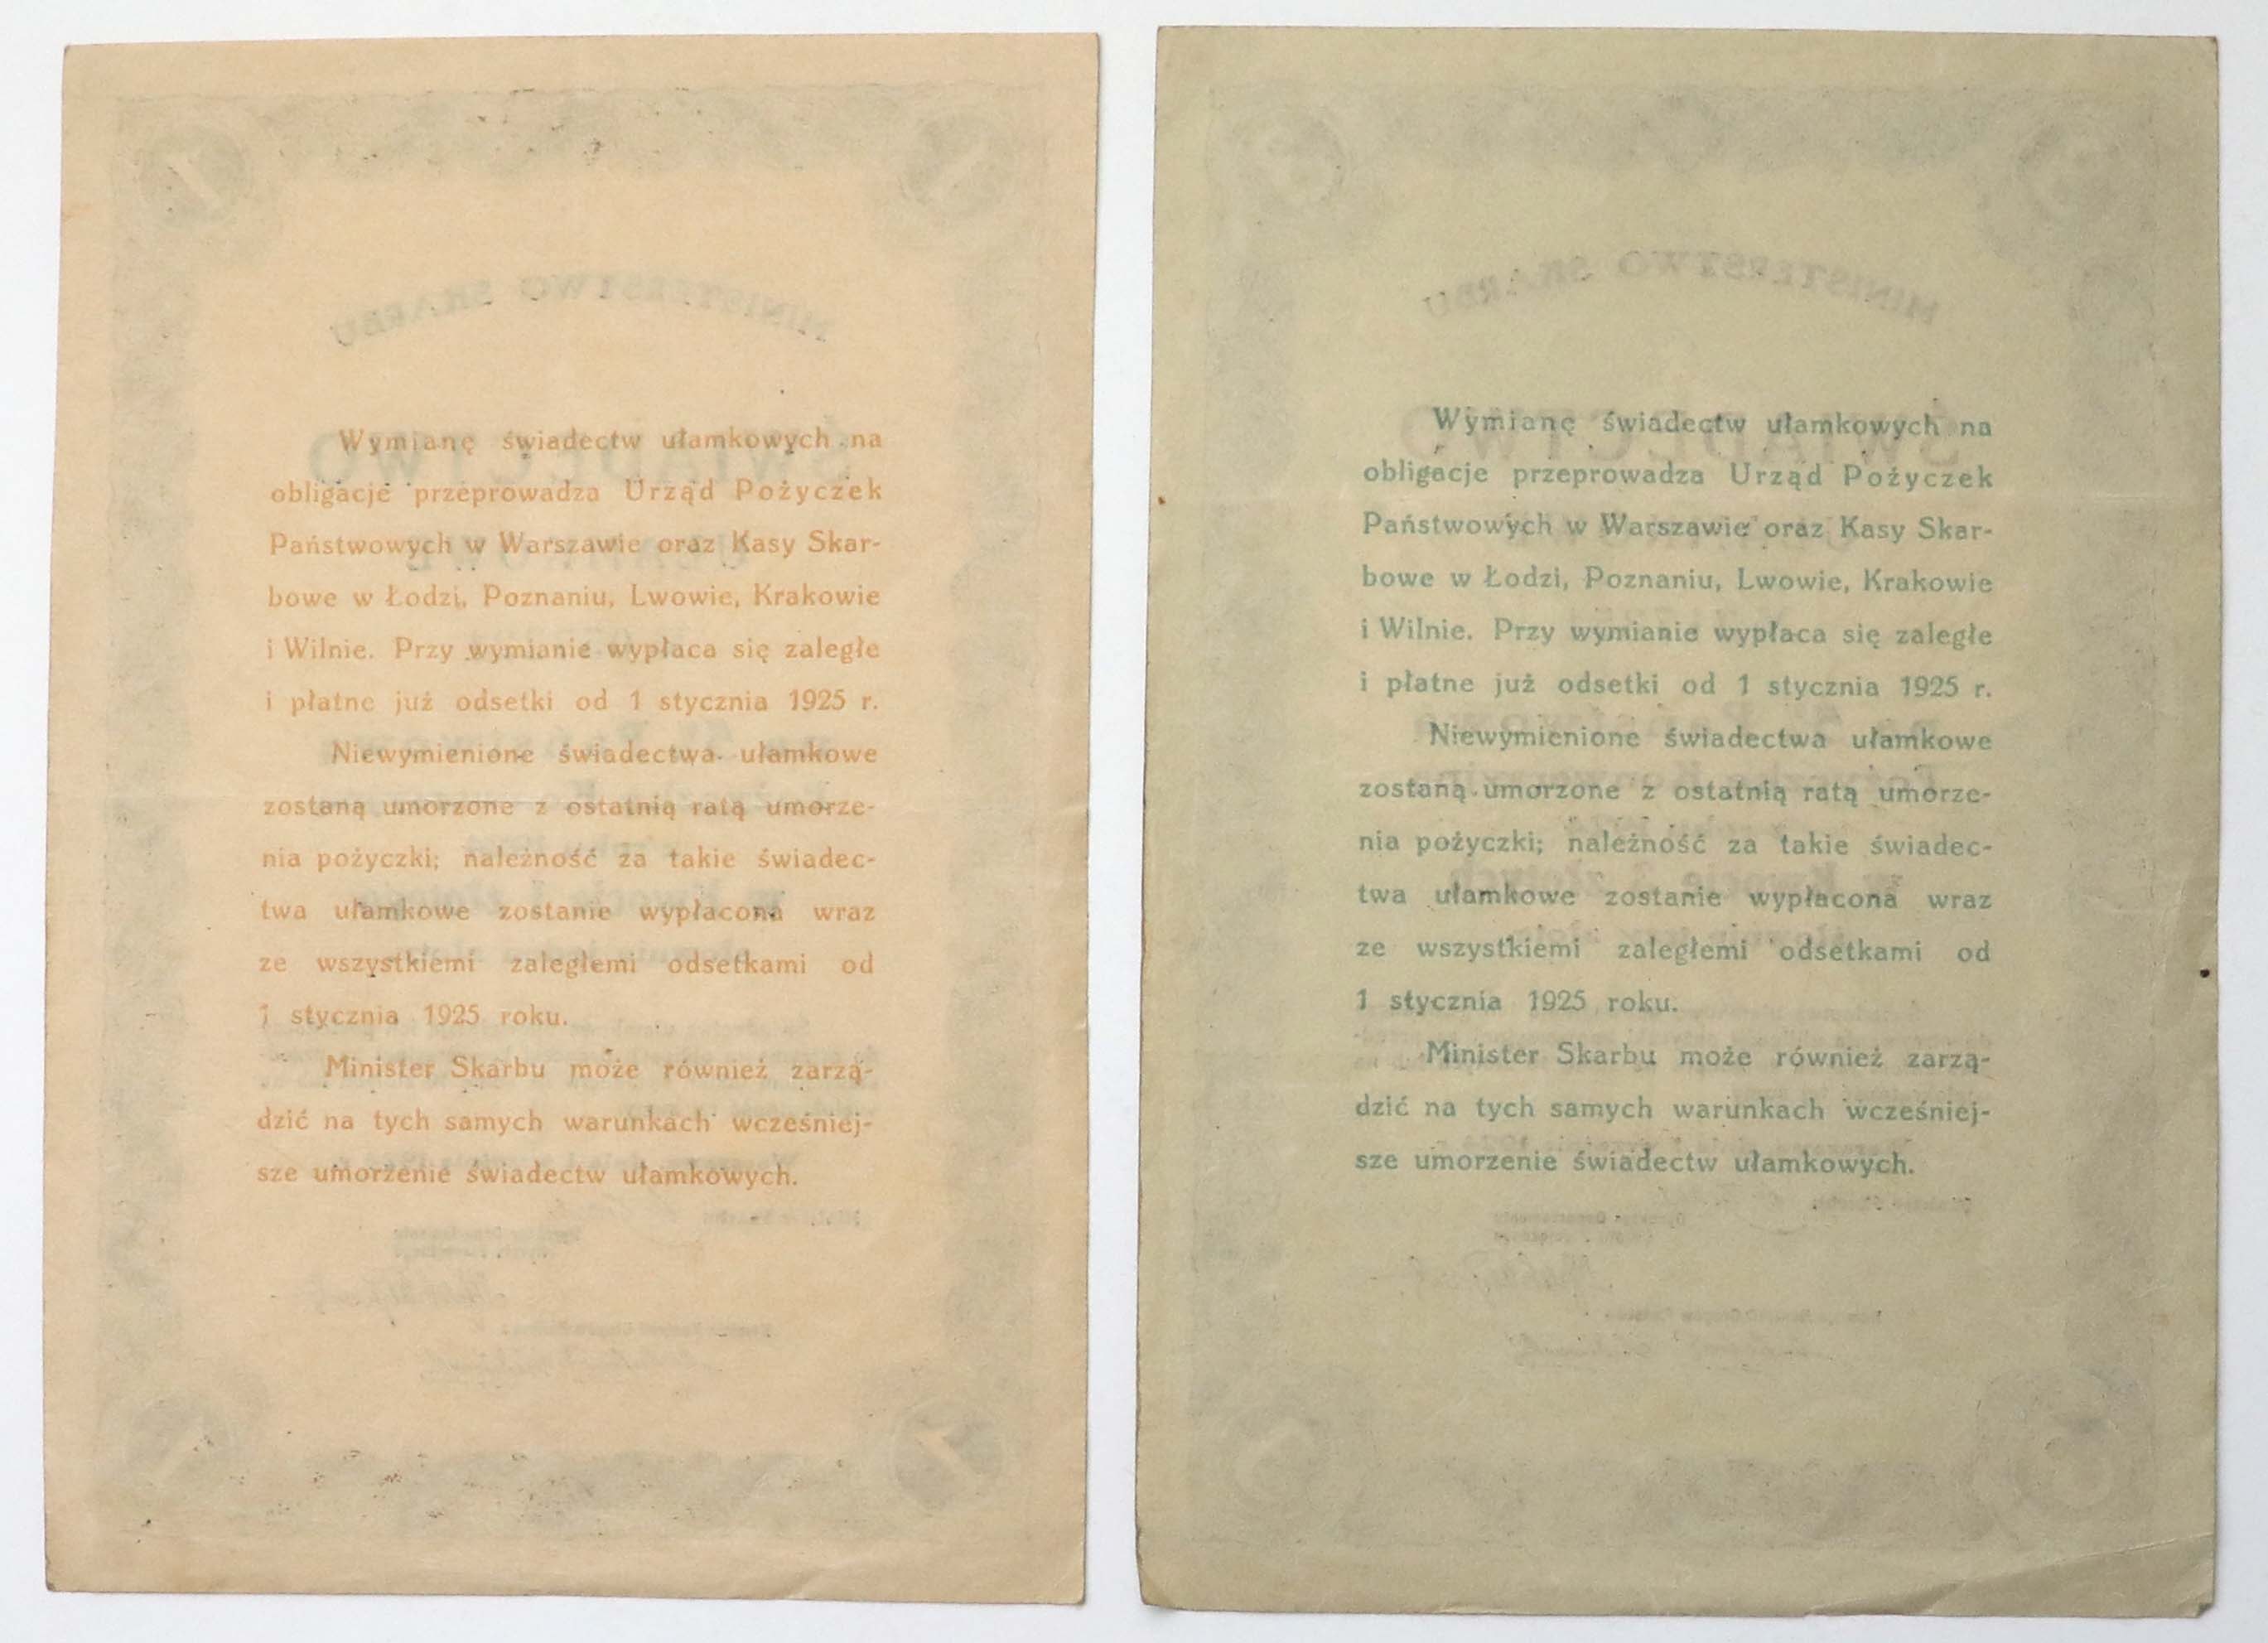 Wymianę świadectw ułamkowych na
obligacje przeprowadza Urząd Pożyczek
Państwowych w Warszawie oraz Kasy Skar-
bowe w Łodzi, Poznaniu, Lwowie, Krakowie
i Wilnie. Przy wymianie wypłaca się zaległe
i płatne już odsetki od 1 stycznia 1925 r.
Niewymienione świadectwa ułamkowe
zostaną umorzone z ostatnią ratą umorze-
nia pożyczki; należność za takie świadec-
twa ułamkowe zostanie wypłacona wraz
ze wszystkiemi zaległemi odsetkami od
1 stycznia 1925 roku.
Minister Skarbu może również zarzą-
dzić na tych samych warunkach wcześniej-
sze umorzenie świadectw ułamkowych.
MINISTERSTWO SKARBU
ŚWIADECTWO
1
1
1
1
Wymianę świadectw ułamkowych na
obligacje przeprowadza Urząd Pożyczek
Państwowych w Warszawie oraz Kasy Skar-
bowe w Łodzi, Poznaniu, Lwowie, Krakowie
i Wilnie. Przy wymianie wypłaca się zaległe
i płatne już odsetki od 1 stycznia 1925 r.
Niewymienione świadectwa ułamkowe
zostaną umorzone z ostatnią ratą umorze-
nia pożyczki; należność za takie świadec-
twa ułamkowe zostanie wypłacona wraz
ze wszystkiemi zaległemi odsetkami od
1 stycznia 1925 roku.
Minister Skarbu może również zarzą-
dzić na tych samych warunkach wcześniej-
sze umorzenie świadectw ułamkowych.
MINISTERSTWO SKARBU
ŚWIADECTWO